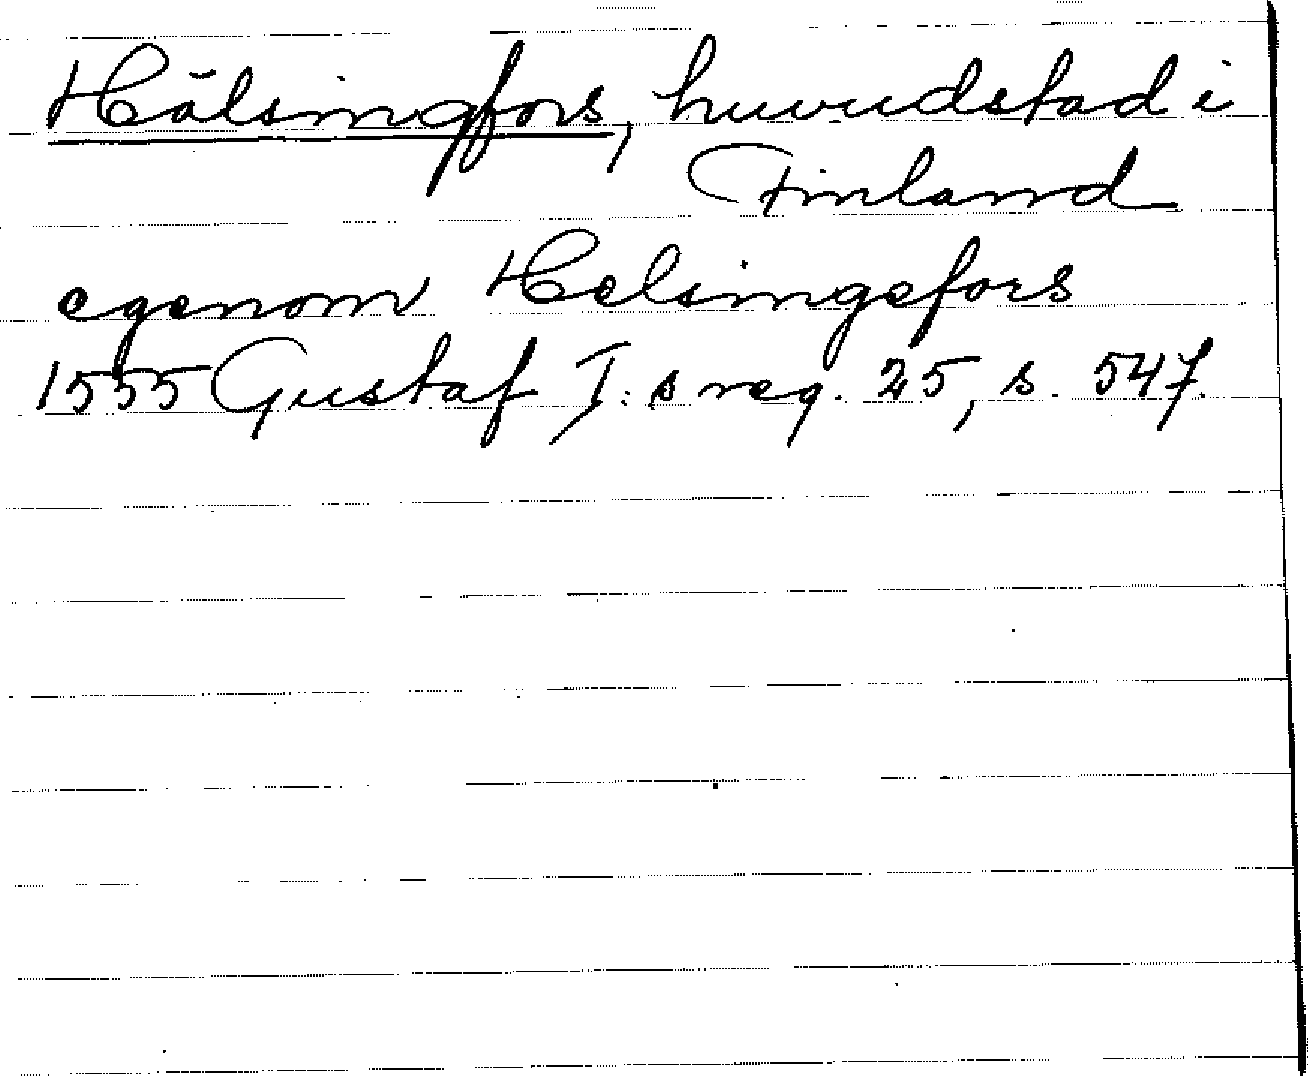 Hälsingfors, huvudstad i
Finland
egenom Helsingefors
1555 Gustaf I:s reg. 25, s. 547.